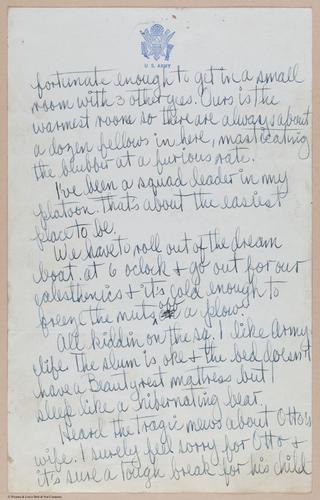 U.S. ARMY
fortunate enough to get in a small
room with 3 other guys. Ours is the
warmest room so there are always about
a dozen fellows in here, masticating
the blubber at a furious rate.
I've been a squad leader in my
platoon. That's about the easiest
place to be.
We have to roll out of the dream
boat at 6 oclock & go out for our
calisthenics & it's cold enough to
freeze the nuts off a plow.
All kiddin on the sq. I like Army
life. The slum is oke & the bed doesn't
have a Beautyrest mattress but I
sleep like a hibernating bear.
Heard the tragic news about Otto's
wife. I surely feel sorry for Otto &
it's sure a tough break for his child